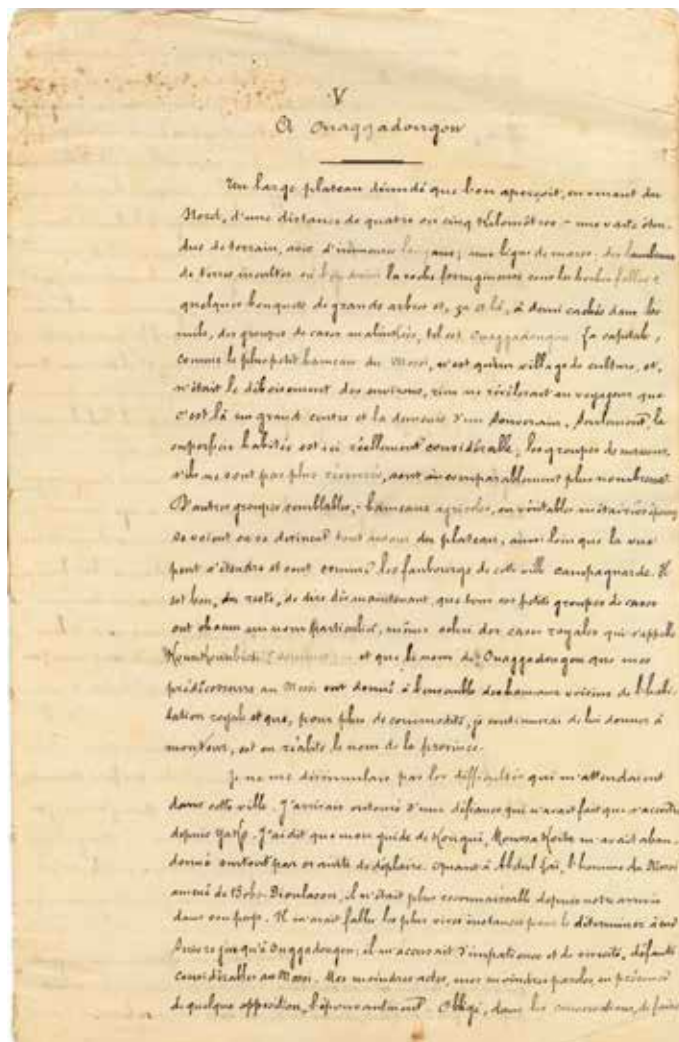 V
A Ouaggadougou
Un large plateau dénudé que l'on aperçoit, en venant du
Nord, d'une distance de quatre ou cinq Kilomètres – une vaste éten-
due de terrain, avec d'immenses ; une ligne de mares; des lambeaux
de terres incultes où la roche ferrugineuse sous les herbes folles;
quelques bouquets de grands arbres et, çà et là, à demi cachés dans les
mils, des groupes de cases malinkées, tel est Ouaggadougou. La capitale,
comme le plus petit hameau du Mossi, n'est qu'un village de culture, et,
n'était le déboisement des environs, rien ne révélerait au voyageur que
c'est là un grand centre et la demeure d'un Souverain. Seulement, la
superficie habitée est ici réellement considérable; les groupes de maisons,
s'ils ne sont pas plus resserrés, sont incomparablement plus nombreux.
D'autres groupes semblables, – hameaux agricoles, ou véritables métairies
se voient ou se devinent tout autour du plateau, aussi loin que la vue
peut s'étendre et sont comme les faubourgs de cette ville campagnarde. Il
est bon, du reste, de dire dès maintenant, que tous ces petits groupes de cases
ont chacun un nom particulier, même celui des cases royales qui s'appelle
et que le nom de Ouaggadougou que mes
prédécesseurs au Mossi ont donné à l'ensemble des hameaux voisins de l'habi-
tation royale et que, pour plus de commodité, je continuerai de lui donner à
mon tour, est en réalité le nom de la province.
Je ne me dissimulais pas les difficultés qui m'attendaient
dans cette ville. J'arrivais entouré d'une défiance qui n'avait fait que s'accroître
depuis Yako. J'ai dit que mon guide de Kongui, Moussa Keita m'avait aban-
donné surtout par crainte de déplaire. Quant à Abdul Gaï, l'homme du Mossi
amené de Bobo-Dioulasou, il n'était plus reconnaissable depuis notre arrivée
dans son pays. Il m'avait fallu les plus vives instances pour le déterminer à me
suivre jusqu'à Ouggadougou; il m'accusait d'impatience et de vivacité, défauts
considérables au Mossi. Mes moindres actes, mes moindres paroles, en présence
de quelque opposition, l'épouvantaient. Obligé, dans les conversations, de faire